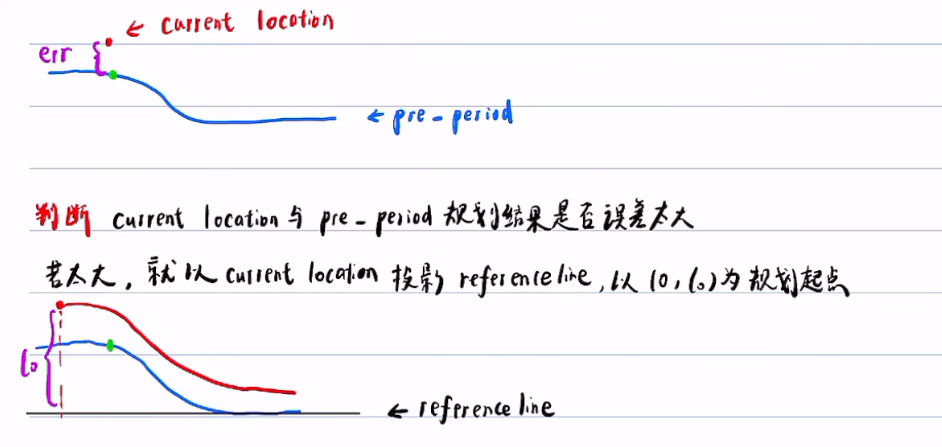 ← current location
err
← pre-period
判断 current location 与 pre-period 规划结果是否误差太大
若太大, 就以 current location 投影 reference line, 以 (0, l₀) 为规划起点
l₀
← reference line